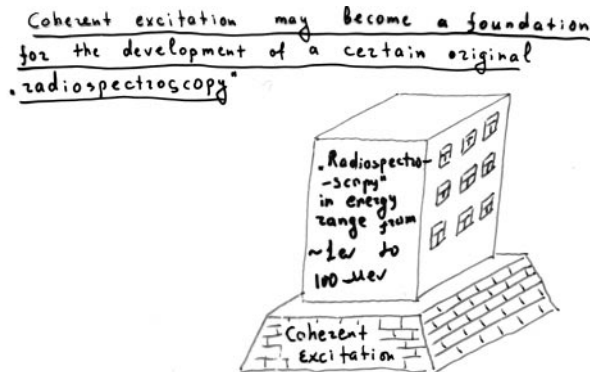 Coherent excitation may become a foundation
for the development of a certain original
„radiospectroscopy"
„Radiospectro-
-scopy"
in energy
range from
~1ev to
100 Mev
Coherent
Excitation